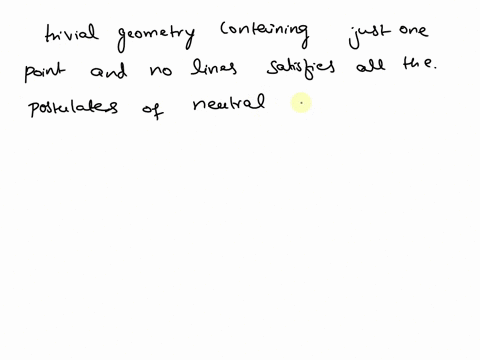 trivial geometry containing just one
point and no lines satisfies all the.
postulates of neutral